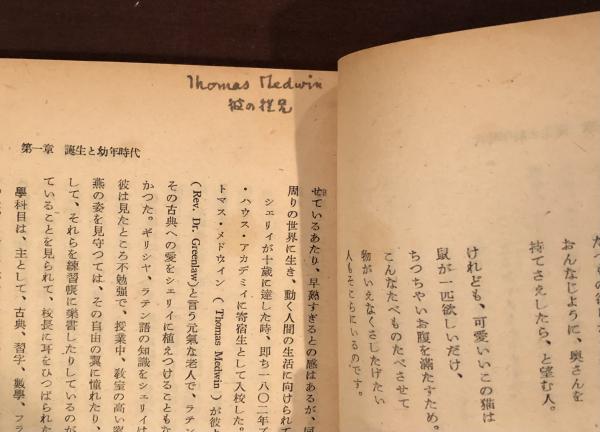 おんなじように、奥さんを
持てさえしたら、と望む人。
けれども、可愛いいこの猫は
鼠が一匹欲しいだけ、
ちつちやいお腹を滿たすため。
こんなたべものたべさせて
物がいえなくさしたげたい
人もそこらにいるのです。
Thomas Medwin
彼の從兄
第一章 誕生と幼年時代
せているあたり、早熟すぎるとの感はあるが、同
周りの世界に生き、動く人間の生活に向けられて
シェリイが十歳に達した時、即ち一八〇二年
・ハウス・アカデミイに寄宿生として入校した。
トマス・メドウイン (Thomas Medwin) が彼
(Rev. Dr. Greenlaw)と言う元氣な老人で、ラテン
その古典への愛をシェリイに植えつけることもな
かつた。ギリシヤ、ラテン語の知識をシェリイは
彼は見たところ不勉強で、授業中、敎室の高い窓
燕の姿を見守つては、その自由の翼に憧れたり、
して、それらを練習帳に樂書したりしているのが
ていることを見られて、校長に耳をひつぱられた
學科目は、主として、古典、習字、數學、フラ